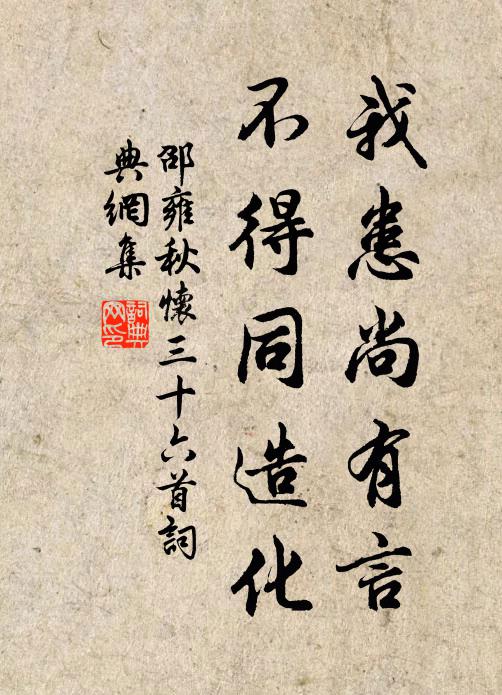 我患尚有言
不得同造化
邵雍秋懷三十六首詞
典網集
詞典网印